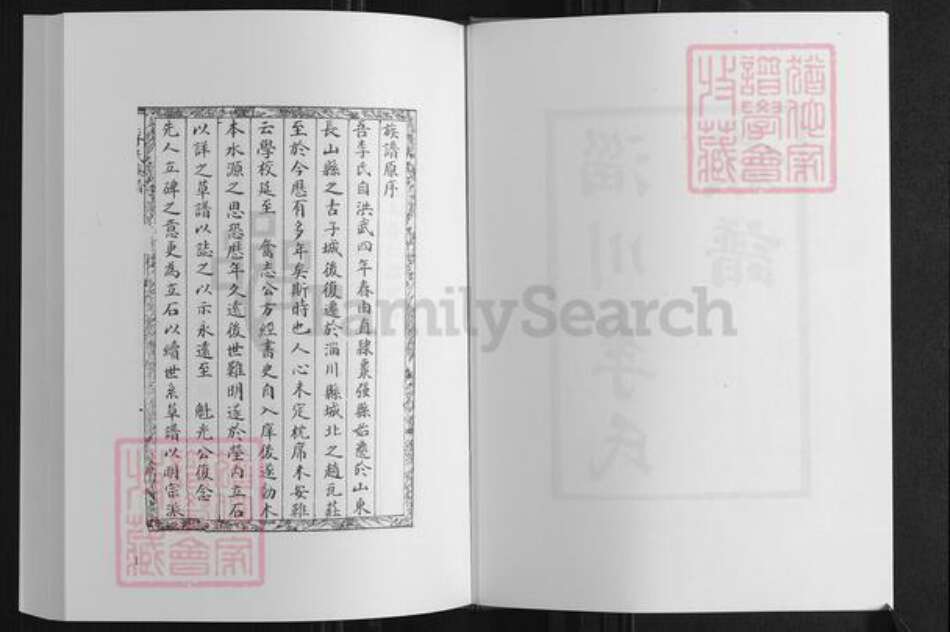 族譜原序
吾李氏自洪武四年春由直隸棗强縣始遷於山東
長山縣之古于城後復遷於淄川縣城北之趙瓦莊
至於今歷有多年矣斯時也人心未定枕席未安雖
云學校延至 奮志公方經書史自入庠後遂動木
本水源之思恐歷年久遠後世難明遂於塋內立石
以詳之草譜以誌之以示永遠至 魁光公復念
先人立碑之意更為立石以續世系草譜以明宗派
1
猶他家
譜學會
收藏
譜
淄川李氏
FamilySearch
猶他家
譜學會
收藏